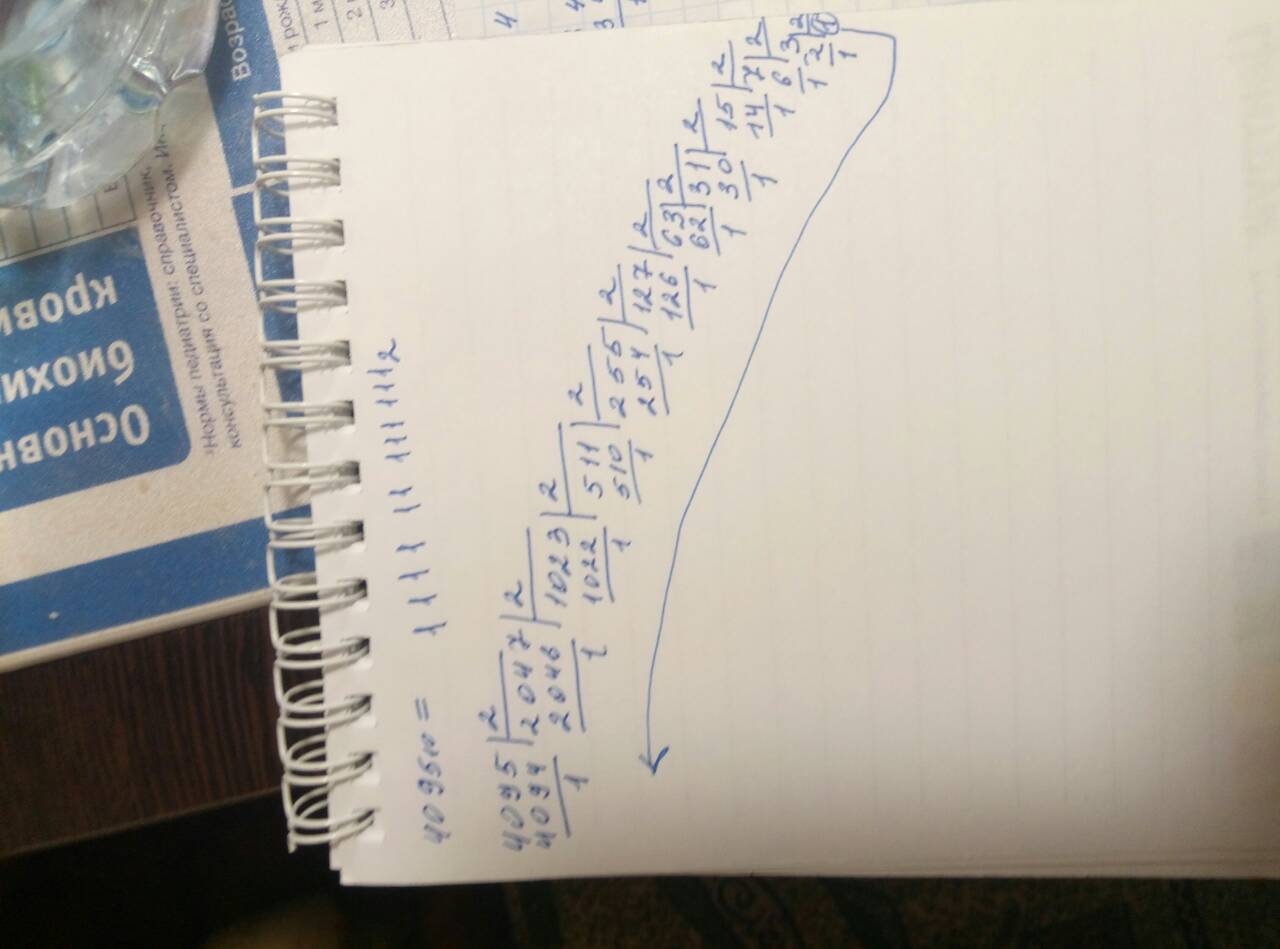 Возрас
рож
1 м
2
4
4
3
Основн
биохи
крови
*Нормы педиатрии: справочник.
консультация со специалистом.
4095₁₀ = 1 1 1 1 11 111 111₂
4095 | 2
4094 | 2047 | 2
1 2046 | 1023 | 2
1 1022 | 511 | 2
1 510 | 255 | 2
1 254 | 127 | 2
1 126 | 63 | 2
1 62 | 31 | 2
1 30 | 15 | 2
1 14 | 7 | 2
1 6 | 3 | 2
1 2 | 1
1